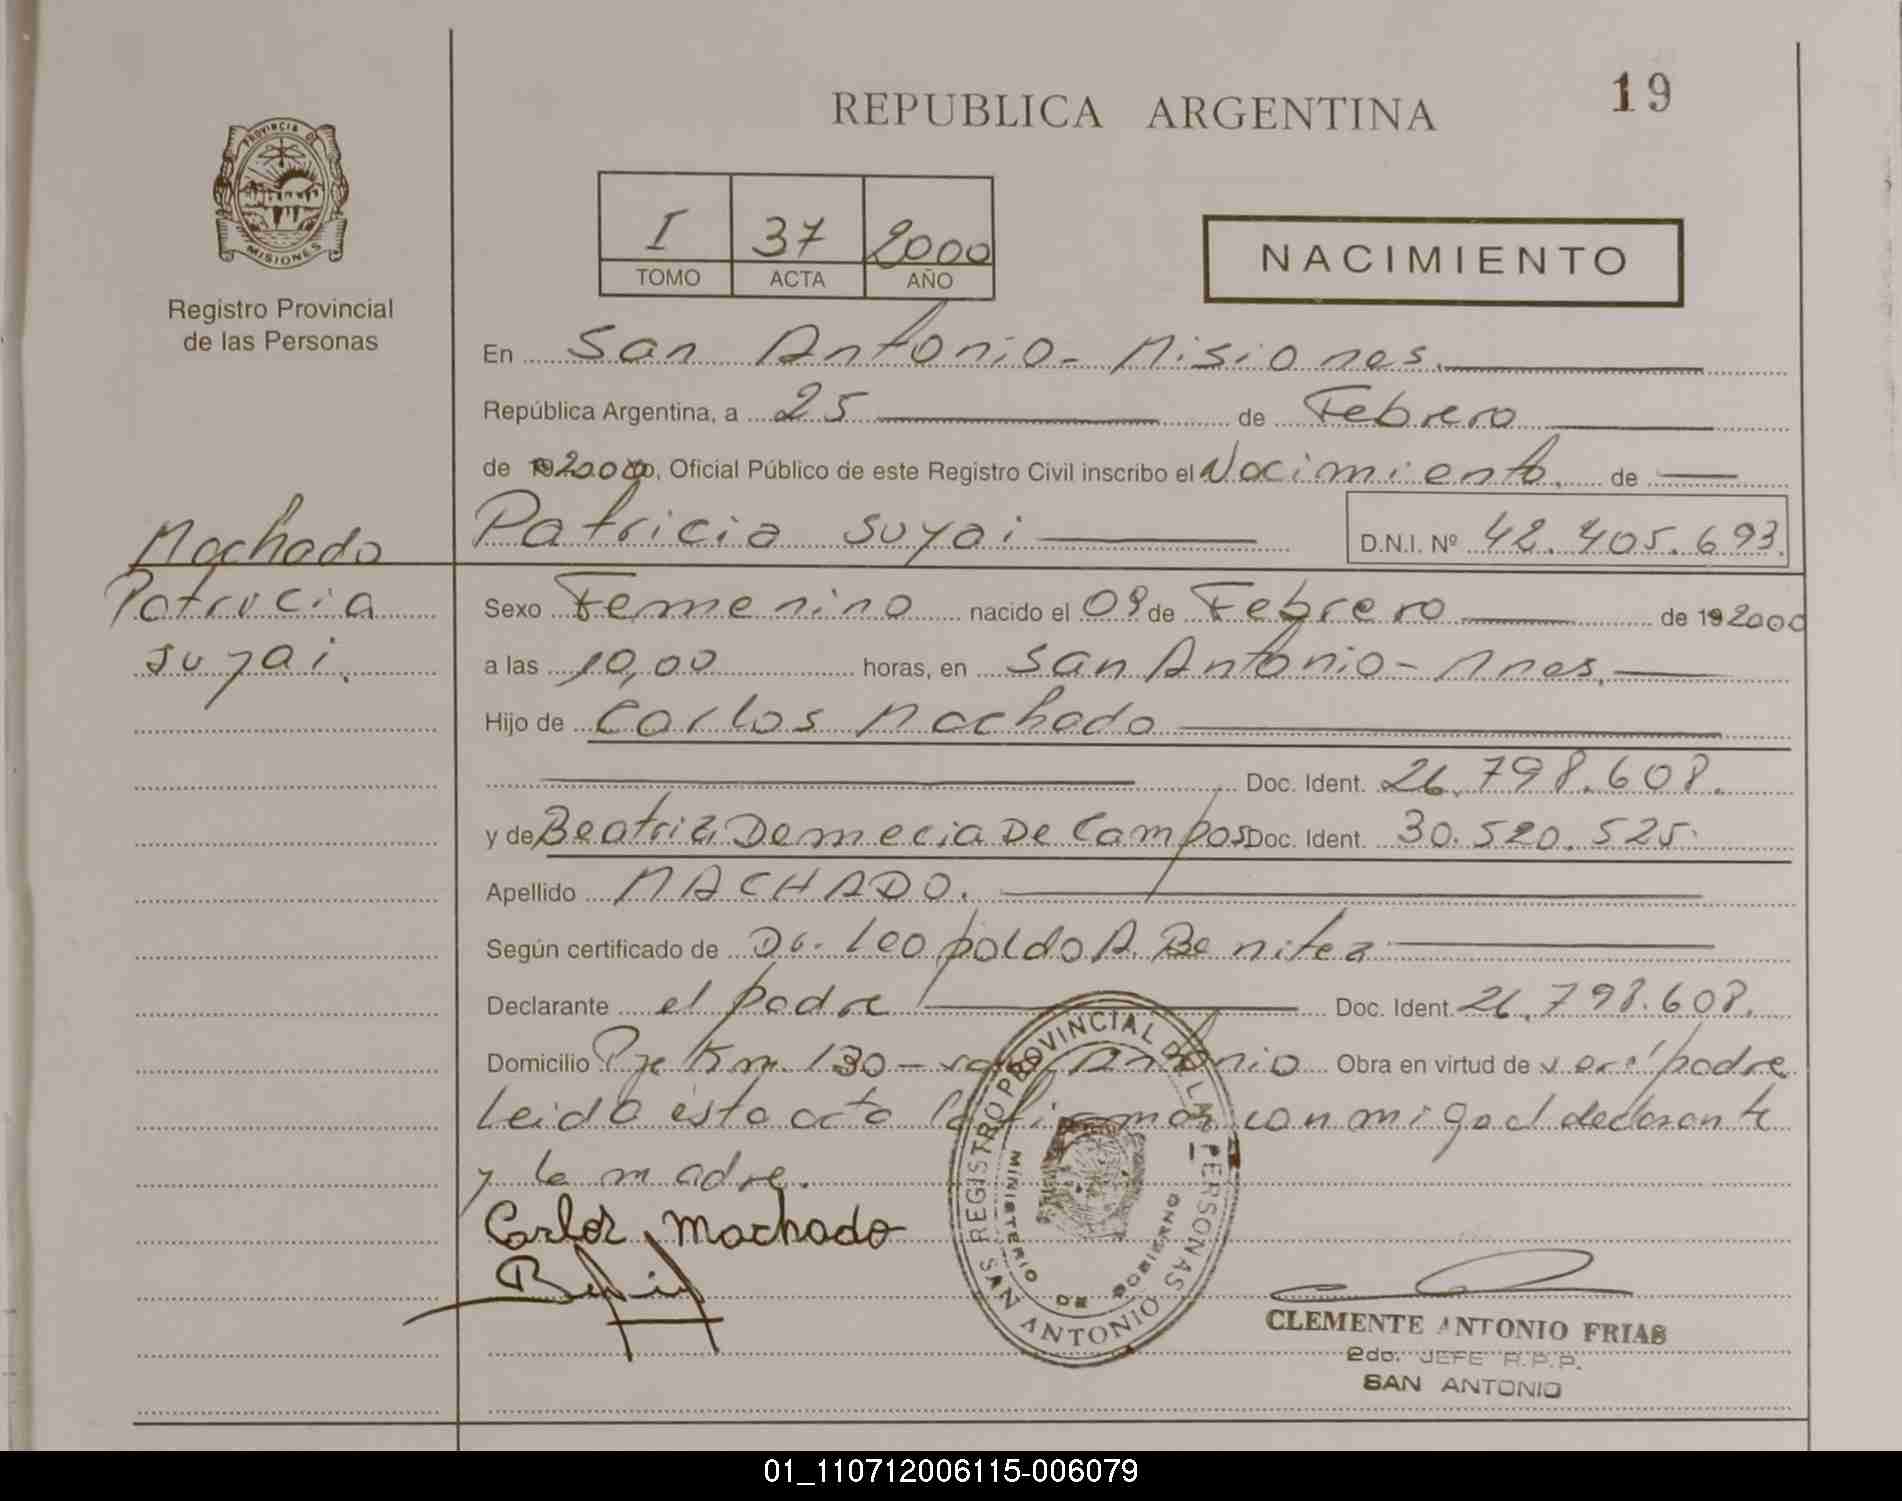 19
REPUBLICA ARGENTINA
PROVINCIA DE
MISIONES
Registro Provincial
de las Personas
I 37 2000
TOMO ACTA AÑO
NACIMIENTO
En San Antonio - Misiones.
República Argentina, a 25 de Febrero
de 2000, Oficial Público de este Registro Civil inscribo el Nacimiento de
Machado
Patricia
Suyai.
Patricia Suyai D.N.I. Nº 42.405.693
Sexo Femenino nacido el 09 de Febrero de 192000
a las 10,00 horas, en San Antonio - Mnes.
Hijo de Carlos Machado
Doc. Ident. 26.798.608.
y de Beatriz Demecia De Campos Doc. Ident. 30.520.525
Apellido MACHADO.
Según certificado de Dr. Leopoldo A. Benitez
Declarante el padre Doc. Ident. 26.798.608.
Domicilio Pje Km. 130 - San Antonio Obra en virtud de ser padre
Leida esta acta la firman conmigo el declarante
y la madre.
Carlos Machado
REGISTRO PROVINCIAL DE LAS PERSONAS
MINISTERIO DE GOBIERNO
SAN ANTONIO
CLEMENTE ANTONIO FRIAS
2do. JEFE R.P.P.
SAN ANTONIO
01_110712006115-006079